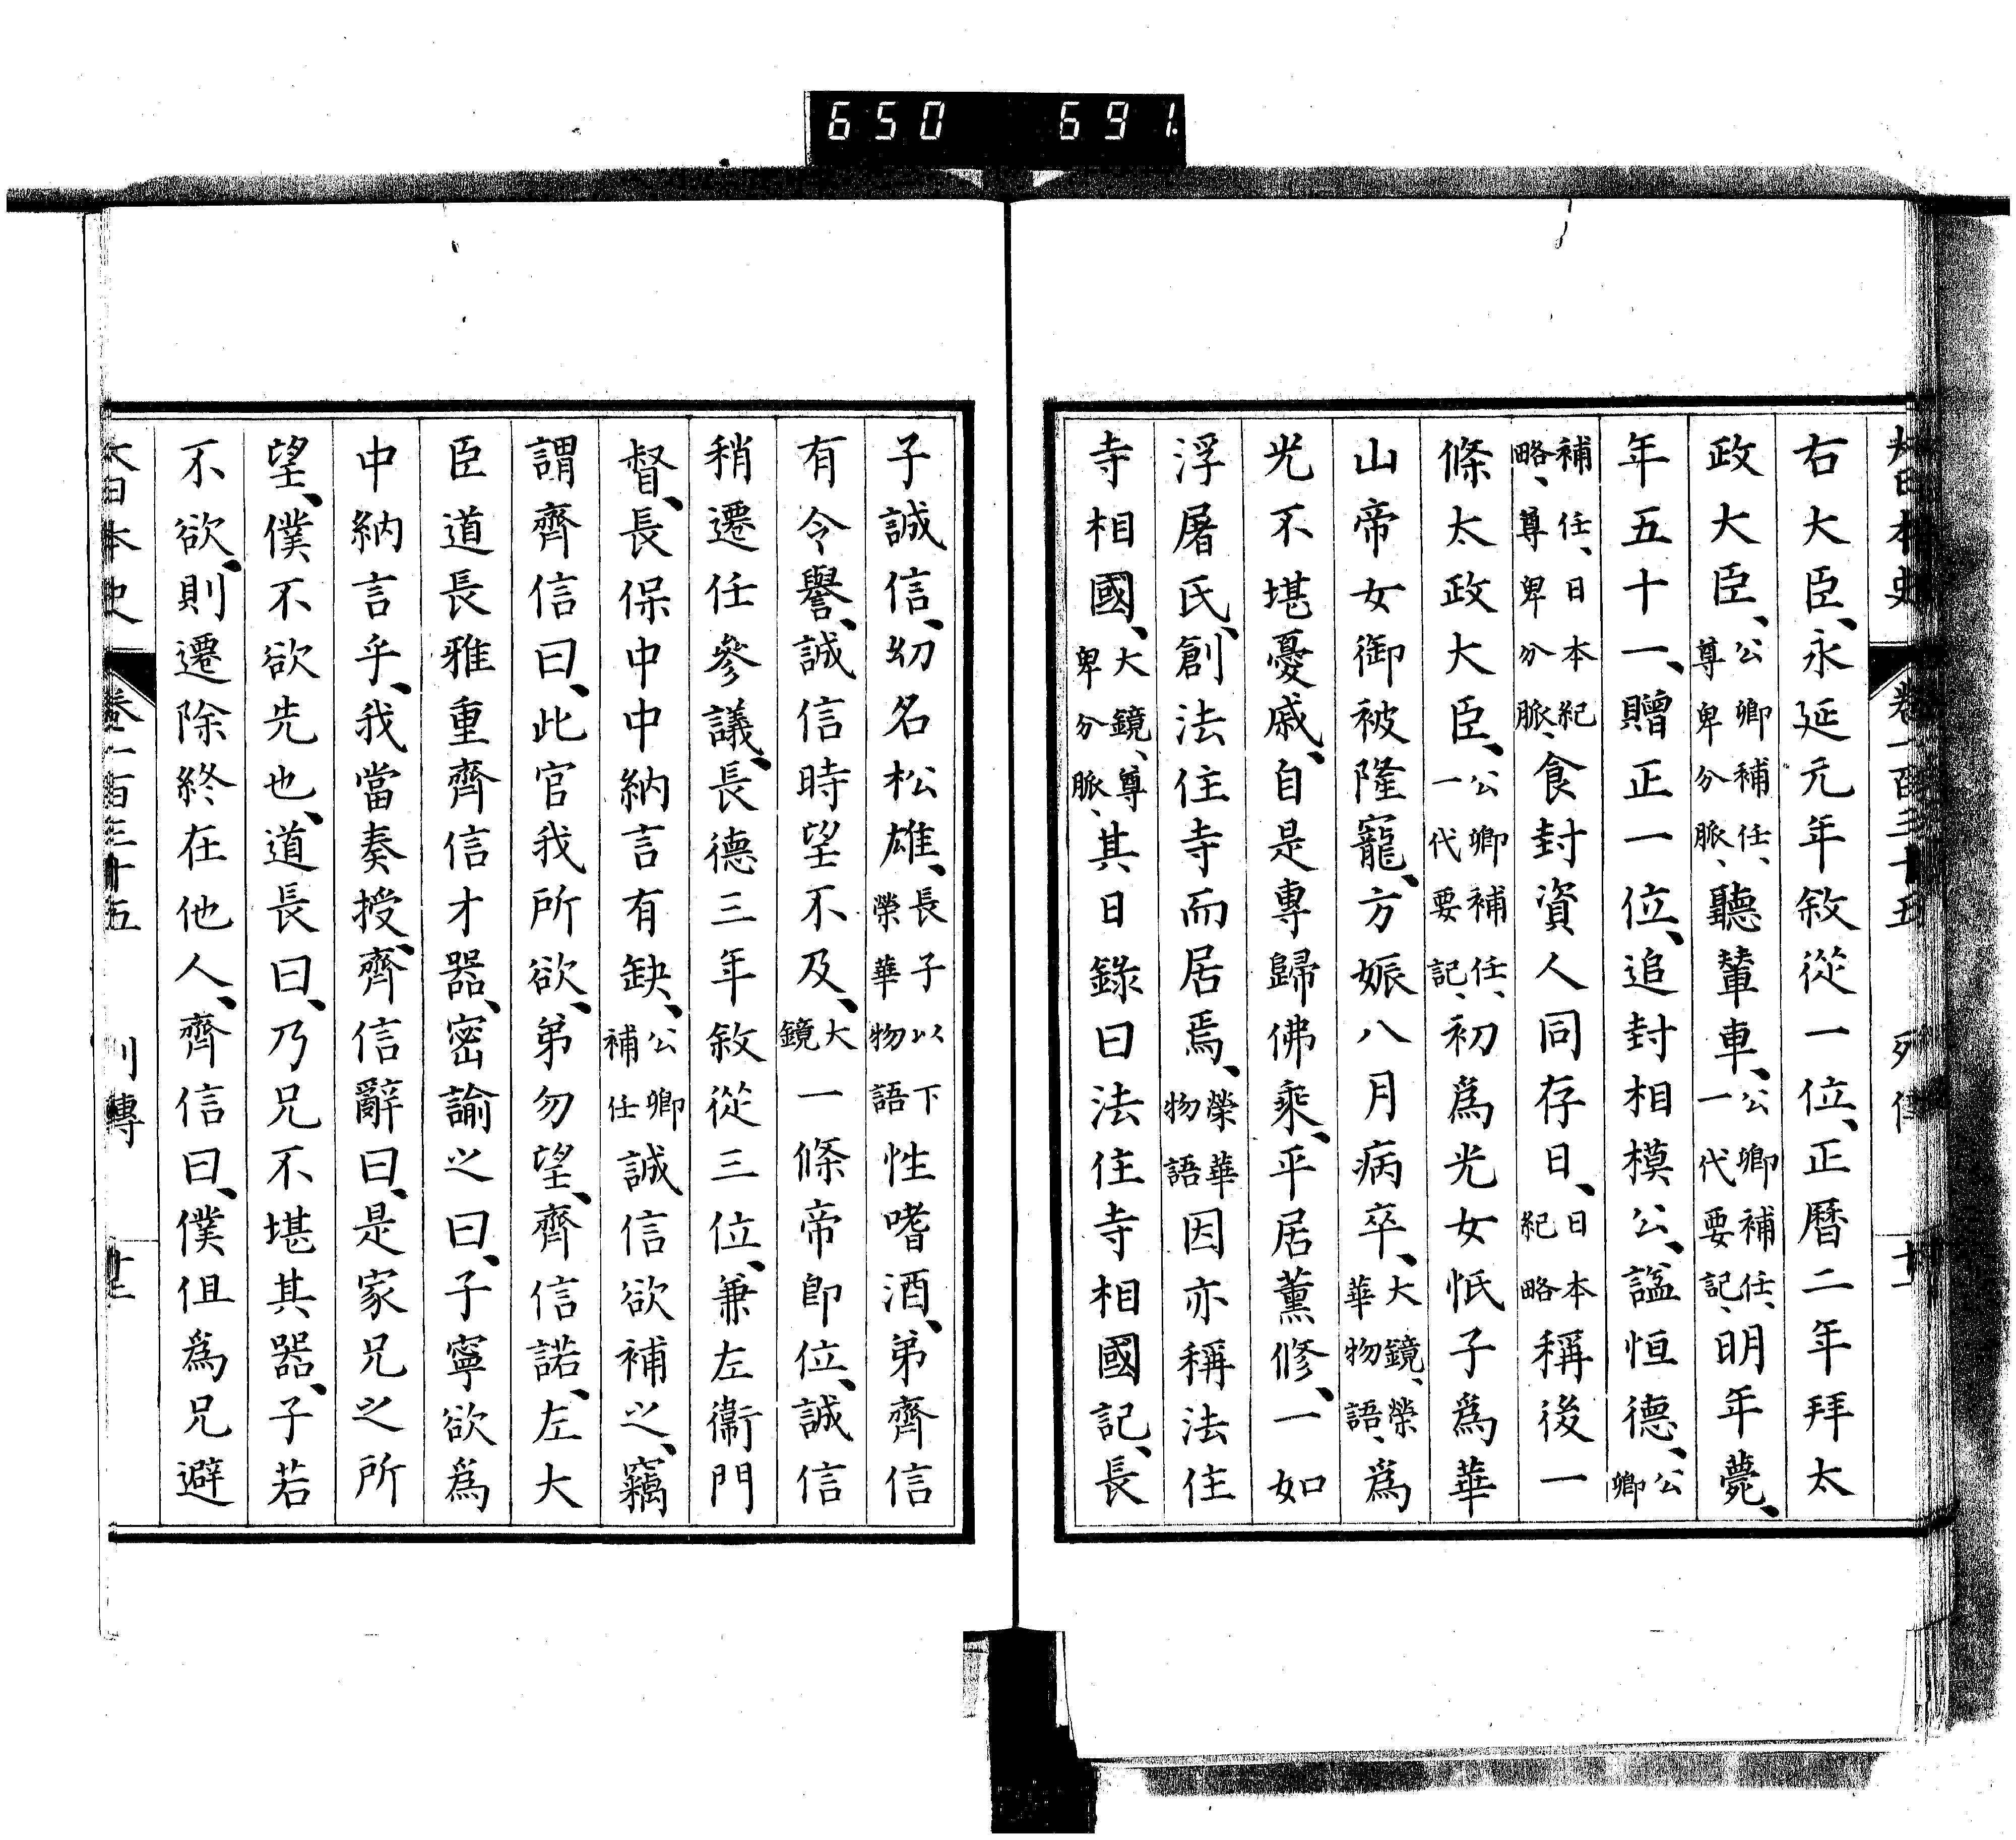 650 691.
大日本史 卷一百三十五 列傳
右大臣、永延元年敘從一位、正曆二年拜太
政大臣、公卿補任、尊卑分脈、聽輦車、公卿補任、一代要記、明年薨、
年五十一、贈正一位、追封相模公、謚恒德、公卿
補任、日本紀略、尊卑分脈、食封資人同存日、日本紀略稱後一
條太政大臣、公卿補任、一代要記、初爲光女忯子爲華
山帝女御被隆寵、方娠八月病卒、大鏡、榮華物語、爲
光不堪憂戚、自是專歸佛乘、平居薰修、一如
浮屠氏、創法住寺而居焉、榮華物語因亦稱法住
寺相國、大鏡、尊卑分脈、其日錄曰法住寺相國記、長
子誠信、幼名松雄、長子以下榮華物語性嗜酒、弟齊信
有令譽、誠信時望不及、大鏡一條帝卽位、誠信
稍遷任參議、長德三年敘從三位、兼左衞門
督、長保中中納言有缺、公卿補任誠信欲補之、竊
謂齊信曰、此官我所欲、弟勿望、齊信諾、左大
臣道長雅重齊信才器、密諭之曰、子寧欲爲
中納言乎、我當奏授、齊信辭曰、是家兄之所
望、僕不欲先也、道長曰、乃兄不堪其器、子若
不欲、則遷除終在他人、齊信曰、僕但爲兄避
大日本史 卷一百三十五 列傳